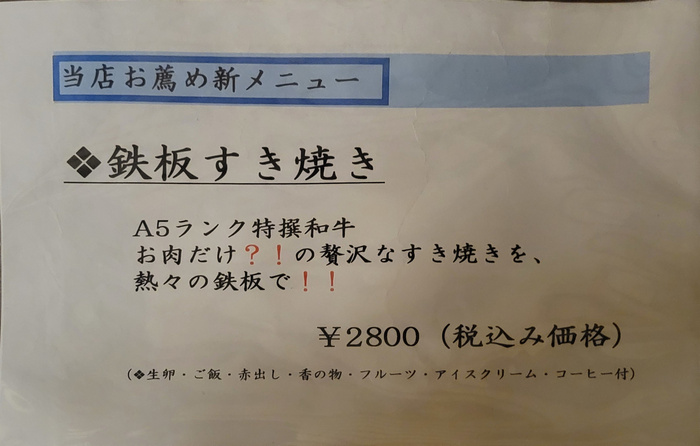 当店お薦め新メニュー
❖鉄板すき焼き
A5ランク特撰和牛
お肉だけ？！の贅沢なすき焼きを、
熱々の鉄板で！！
￥2800（税込み価格）
（❖生卵・ご飯・赤出し・香の物・フルーツ・アイスクリーム・コーヒー付）